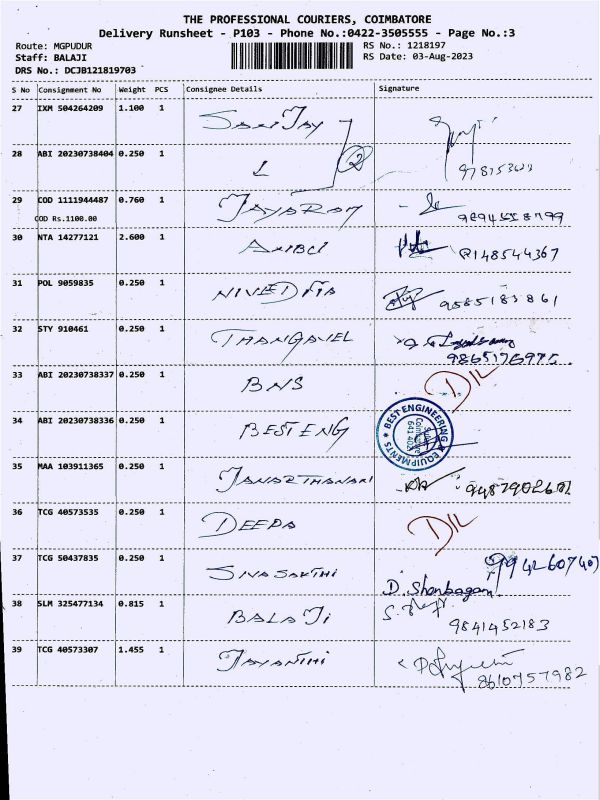 THE PROFESSIONAL COURIERS, COIMBATORE
Delivery Runsheet - P103 - Phone No.:0422-3505555 - Page No.:3
Route: MGPUDUR
Staff: BALAJI
DRS No.: DCJB121819703
RS No.: 1218197
RS Date: 03-Aug-2023
S No Consignment No Weight PCS Consignee Details Signature
27 IXM 504264209 1.100 1 SANJAY
28 ABI 20230738404 0.250 1 2
29 COD 1111944487 0.760 1 JAYARAM
COD Rs.1100.00
30 NTA 14277121 2.600 1
31 POL 9059835 0.250 1 NIVEDITA 9585183861
32 STY 910461 0.250 1 THANGAVEL
33 ABI 20230738337 0.250 1 BNS D/L
34 ABI 20230738336 0.250 1 BEST ENG BEST ENGINEERING EQUIPMENTS
35 MAA 103911365 0.250 1 JANARTHANAN
36 TCG 40573535 0.250 1 DEEPA D/L
37 TCG 50437835 0.250 1 SIVASAKTHI 9942607407
D. Shenbagam
38 SLM 325477134 0.815 1 BALAJI 9841452183
39 TCG 40573307 1.455 1 JAYANTHI 8610757982